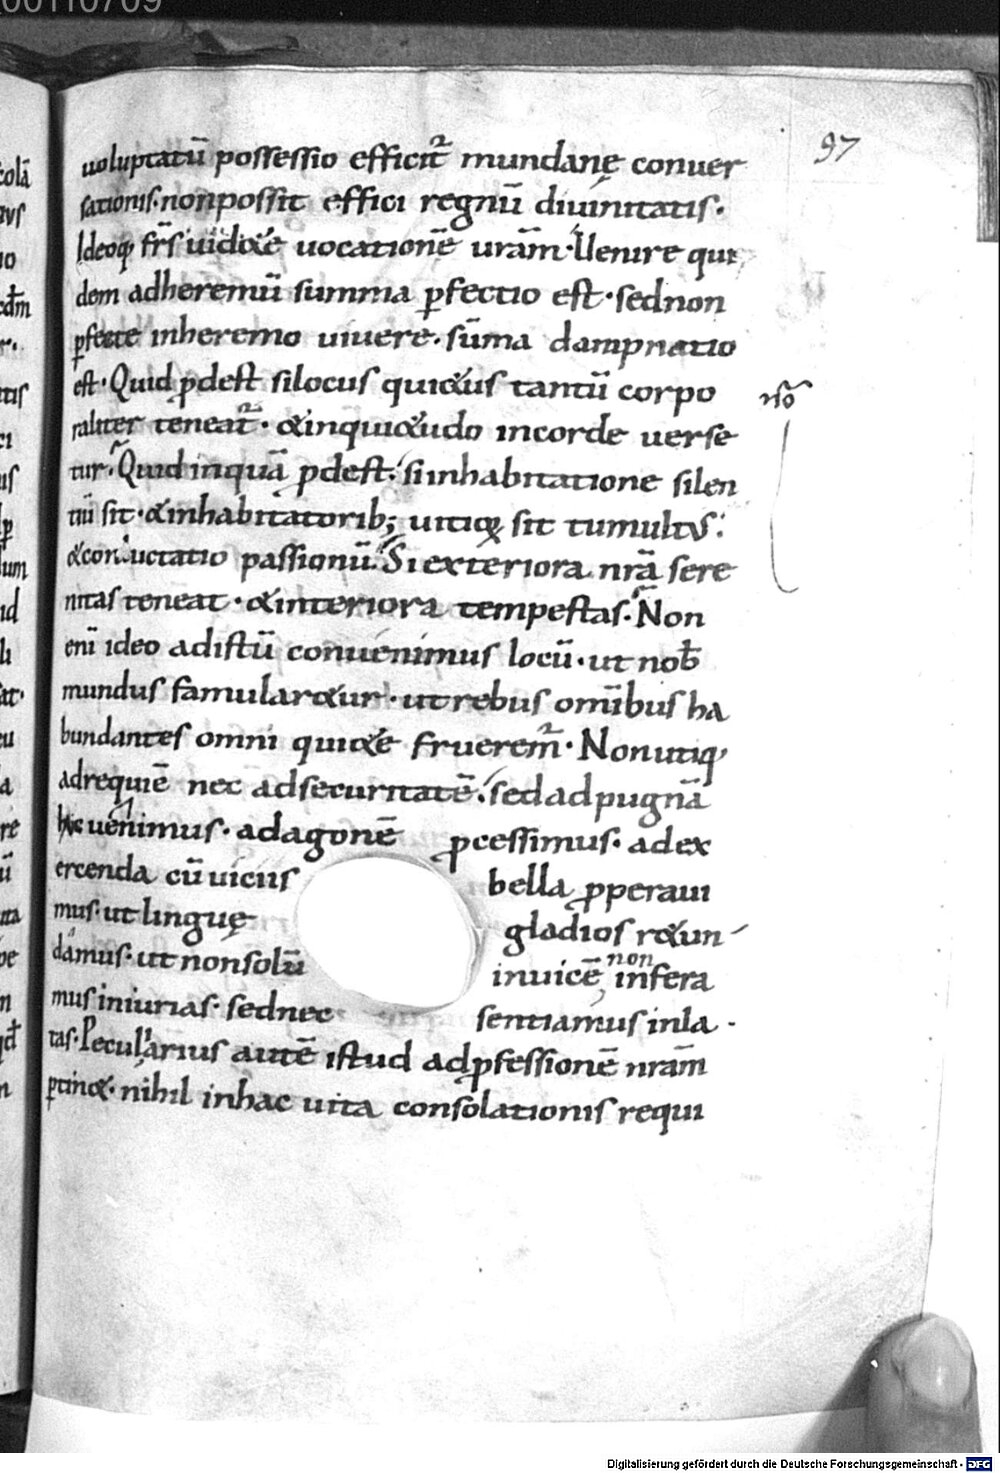 00110709
97
uoluptatū possessio efficit᷑ mundanę conuer
sationis· non possit effici regnū diuinitatis·
Ideoq; frs̄ uid&e uocationē urām· Uenire qui
dem ad heremū summa ꝑfectio est· sed non
ꝑfecte in heremo uiuere· sūma dampnatio
est· Quid ꝓdest si locus qui&us tantū corpo
raliter teneat᷑· & inqui&udo in corde uerse
tur· Quid inquā ꝓdest· si in habitatione silen
tiū sit· & in habitatorib; uitiorꝝ sit tumultus·
& conluctatio passionū· Si exteriora nrā sere
nitas teneat· & interiora tempestas· Non
enī ideo ad istū conuenimus locū· ut nob̄
mundus famular&ur· ut rebus omībus ha
bundantes omni qui&e fruerem᷑· Non utiq;
ad requiē nec ad securitatē· sed ad pugnā
huc uenimus· ad agonē ꝓcessimus· ad ex
ercenda cū uiciis bella ꝓperaui
mus· ut linguę gladios r&un
damus· ut non solū inuicē non infera
mus iniurias· sed nec sentiamus inla
tas· Peculiarius autē istud ad ꝓfessionē nrām
ꝑtin&· nihil in hac uita consolationis requi
Digitalisierung gefördert durch die Deutsche Forschungsgemeinschaft - DFG